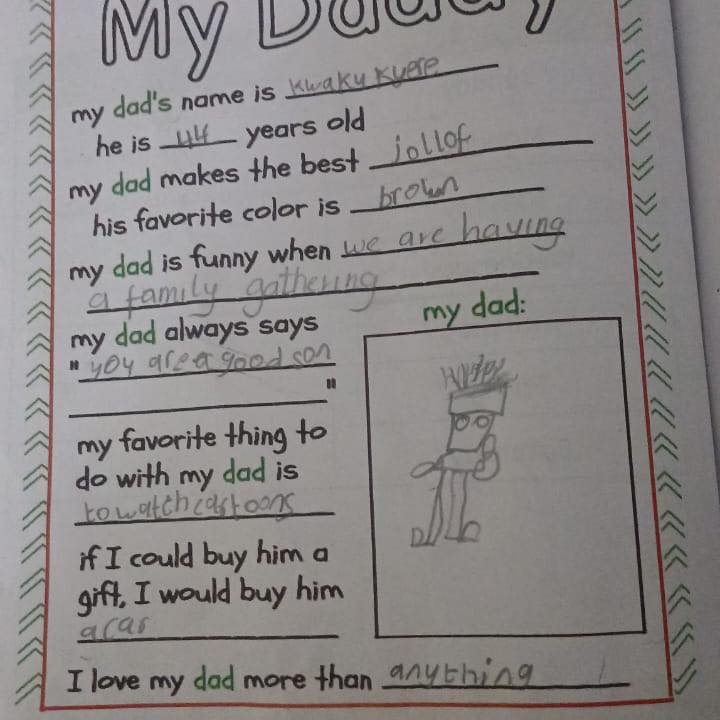 My Daddy
my dad's name is Kwaku Kyere
he is 44 years old
my dad makes the best jollof
his favorite color is brown
my dad is funny when we are having
a family gathering
my dad always says
" you are a good son
"
my dad:
my favorite thing to
do with my dad is
to watch cartoons
if I could buy him a
gift, I would buy him
a car
I love my dad more than anything